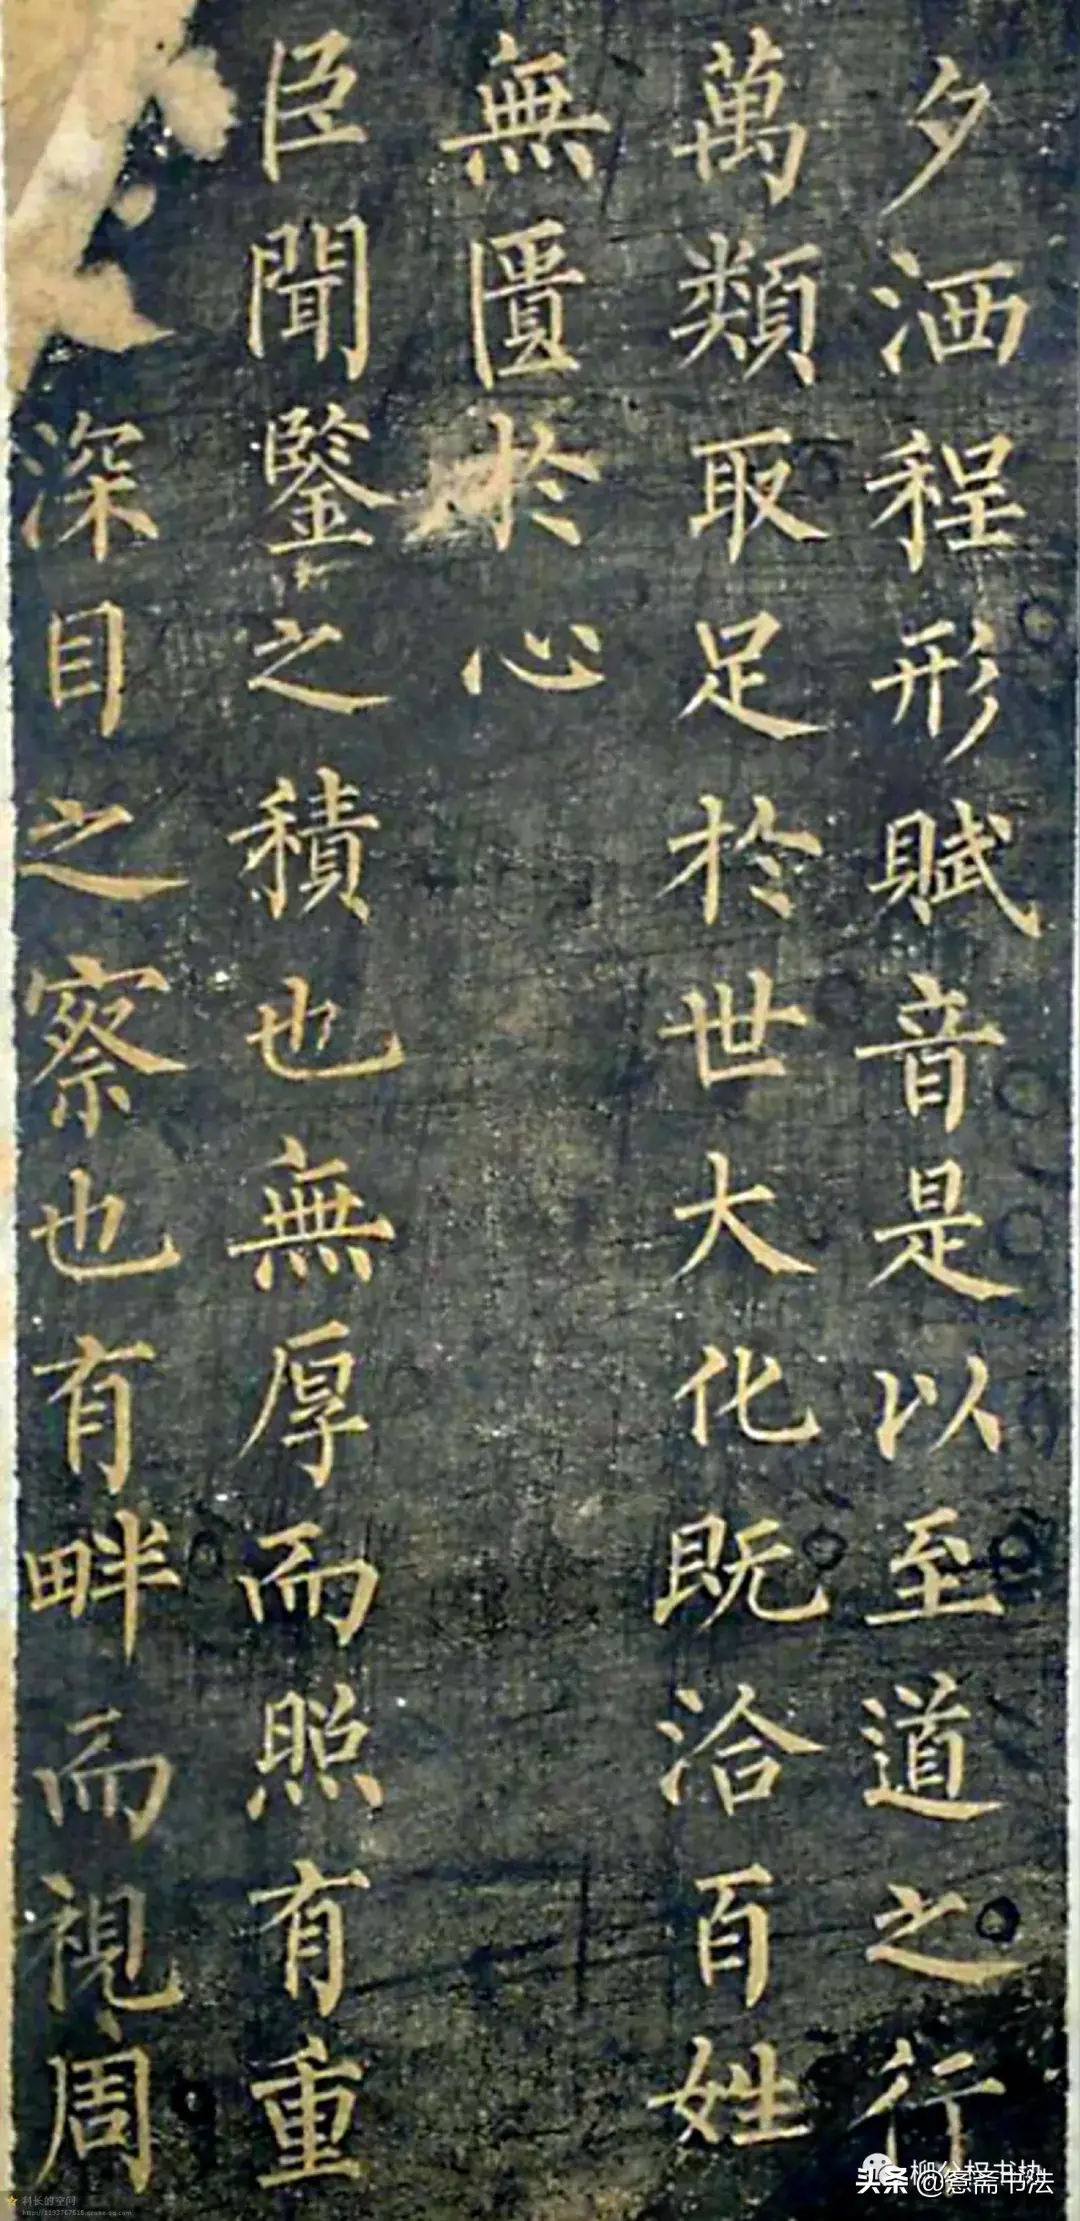 夕洒程形賦音是以至道之行
萬類取足於世大化既洽百姓
無匱於心
臣聞鑒之積也無厚而照有重
深目之察也有畔而視周
柳公权书协
头条@惫斋书法
科长的空间